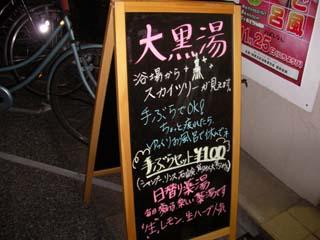 大黒湯
浴場から
スカイツリーが見えます
手ぶらでOK!
ちょっと疲れたら
ゆっくりお風呂で休んでネ
手ぶらセット¥100
(シャンプー、リンス、石鹸
日替り薬湯
楽しい薬湯です
生レモン 生ハーブ
呂風
1.25